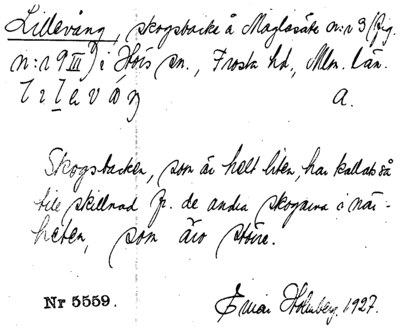 Lillevång, skogsbacke å Maglasäte n:r 3 (fig.
n:r 9 III) i Hörs sn., Frosta hd., Mlm. län.
a.
Skogsbacken, som är helt liten, har kallats så
till skillnad fr. de andra skogarna i när-
heten, som äro större.
Nr 5559.
Einar Holmberg. 1927.